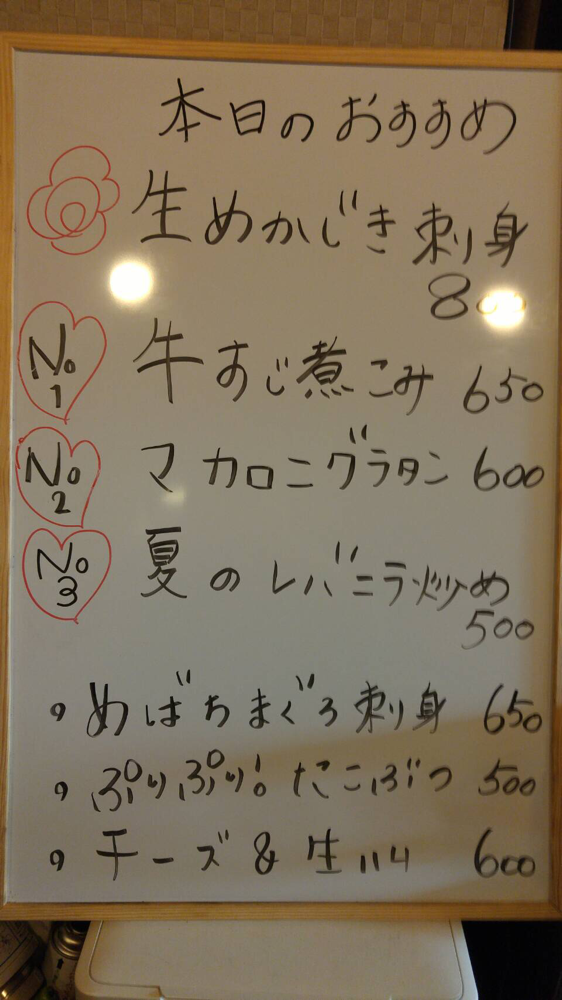 本日のおすすめ
生めかじき刺身
800
No1 牛すじ煮こみ 650
No2 マカロニグラタン 600
No3 夏のレバニラ炒め
500
・めばちまぐろ刺身 650
・ぷりぷり!たこぶつ 500
・チーズ&生ハム 600